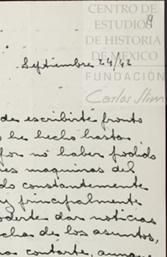 CENTRO DE
ESTUDIOS
DE HISTORIA
DE MÉXICO
FUNDACIÓN
Carlos Slim
9
Septiembre 24/42
de escribirte pronto
lo he hecho hasta
por no haber podido
es maquinas del
do constantemente
y principalmente
poderte dar noticias
chas de los asuntos,
contarte, aunque